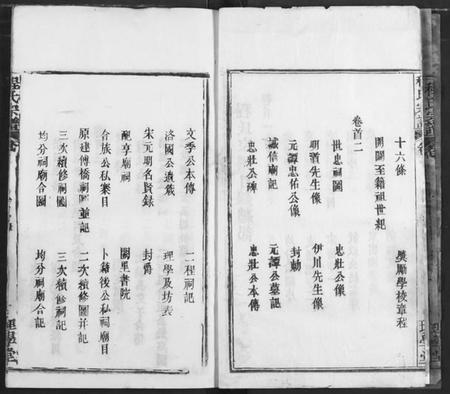 十六條 獎勵學校章程
開閩至籍祖世紀
卷首二
世忠祠圖 忠壯公像
明道先生像 伊川先生像
元譚忠佑公像 封勅
誠信廟記 元譚公墓記
忠壯公碑 忠壯公本傳
文季公本傳 二程祠記
洛國公遺蹟 理學及坊表
宋元明名賢錄 封爵
配享廟祠 闕里書院
合族公私案目 卜籍後公私祠廟目
原建傅橋祠圖並記 二次續修圖并記
三次續修祠圖 三次續修祠記
均分祠廟合圖 均分祠廟合記
程氏宗譜
理學堂